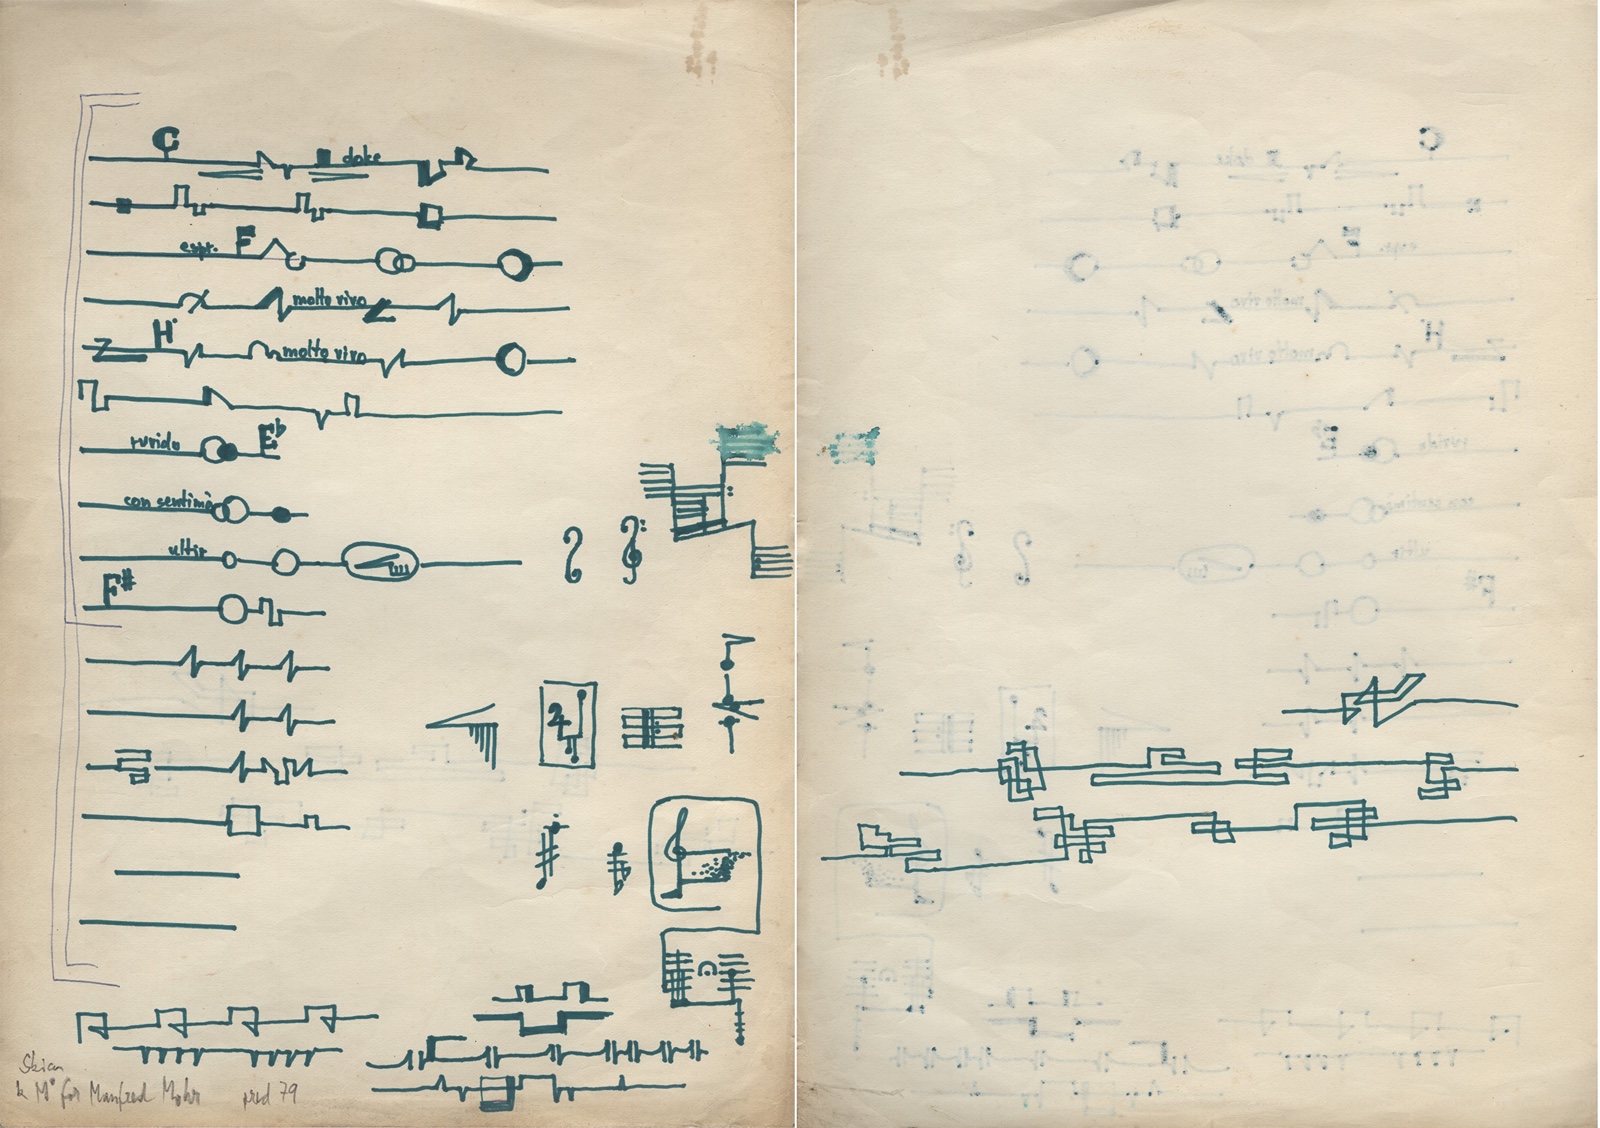 C
dolce
espr. F
molto vivo
H
molto vivo
ruvido E♭
con sentim
ultir
F#
2
Skica
k M° for Manfred Mohr pred 79